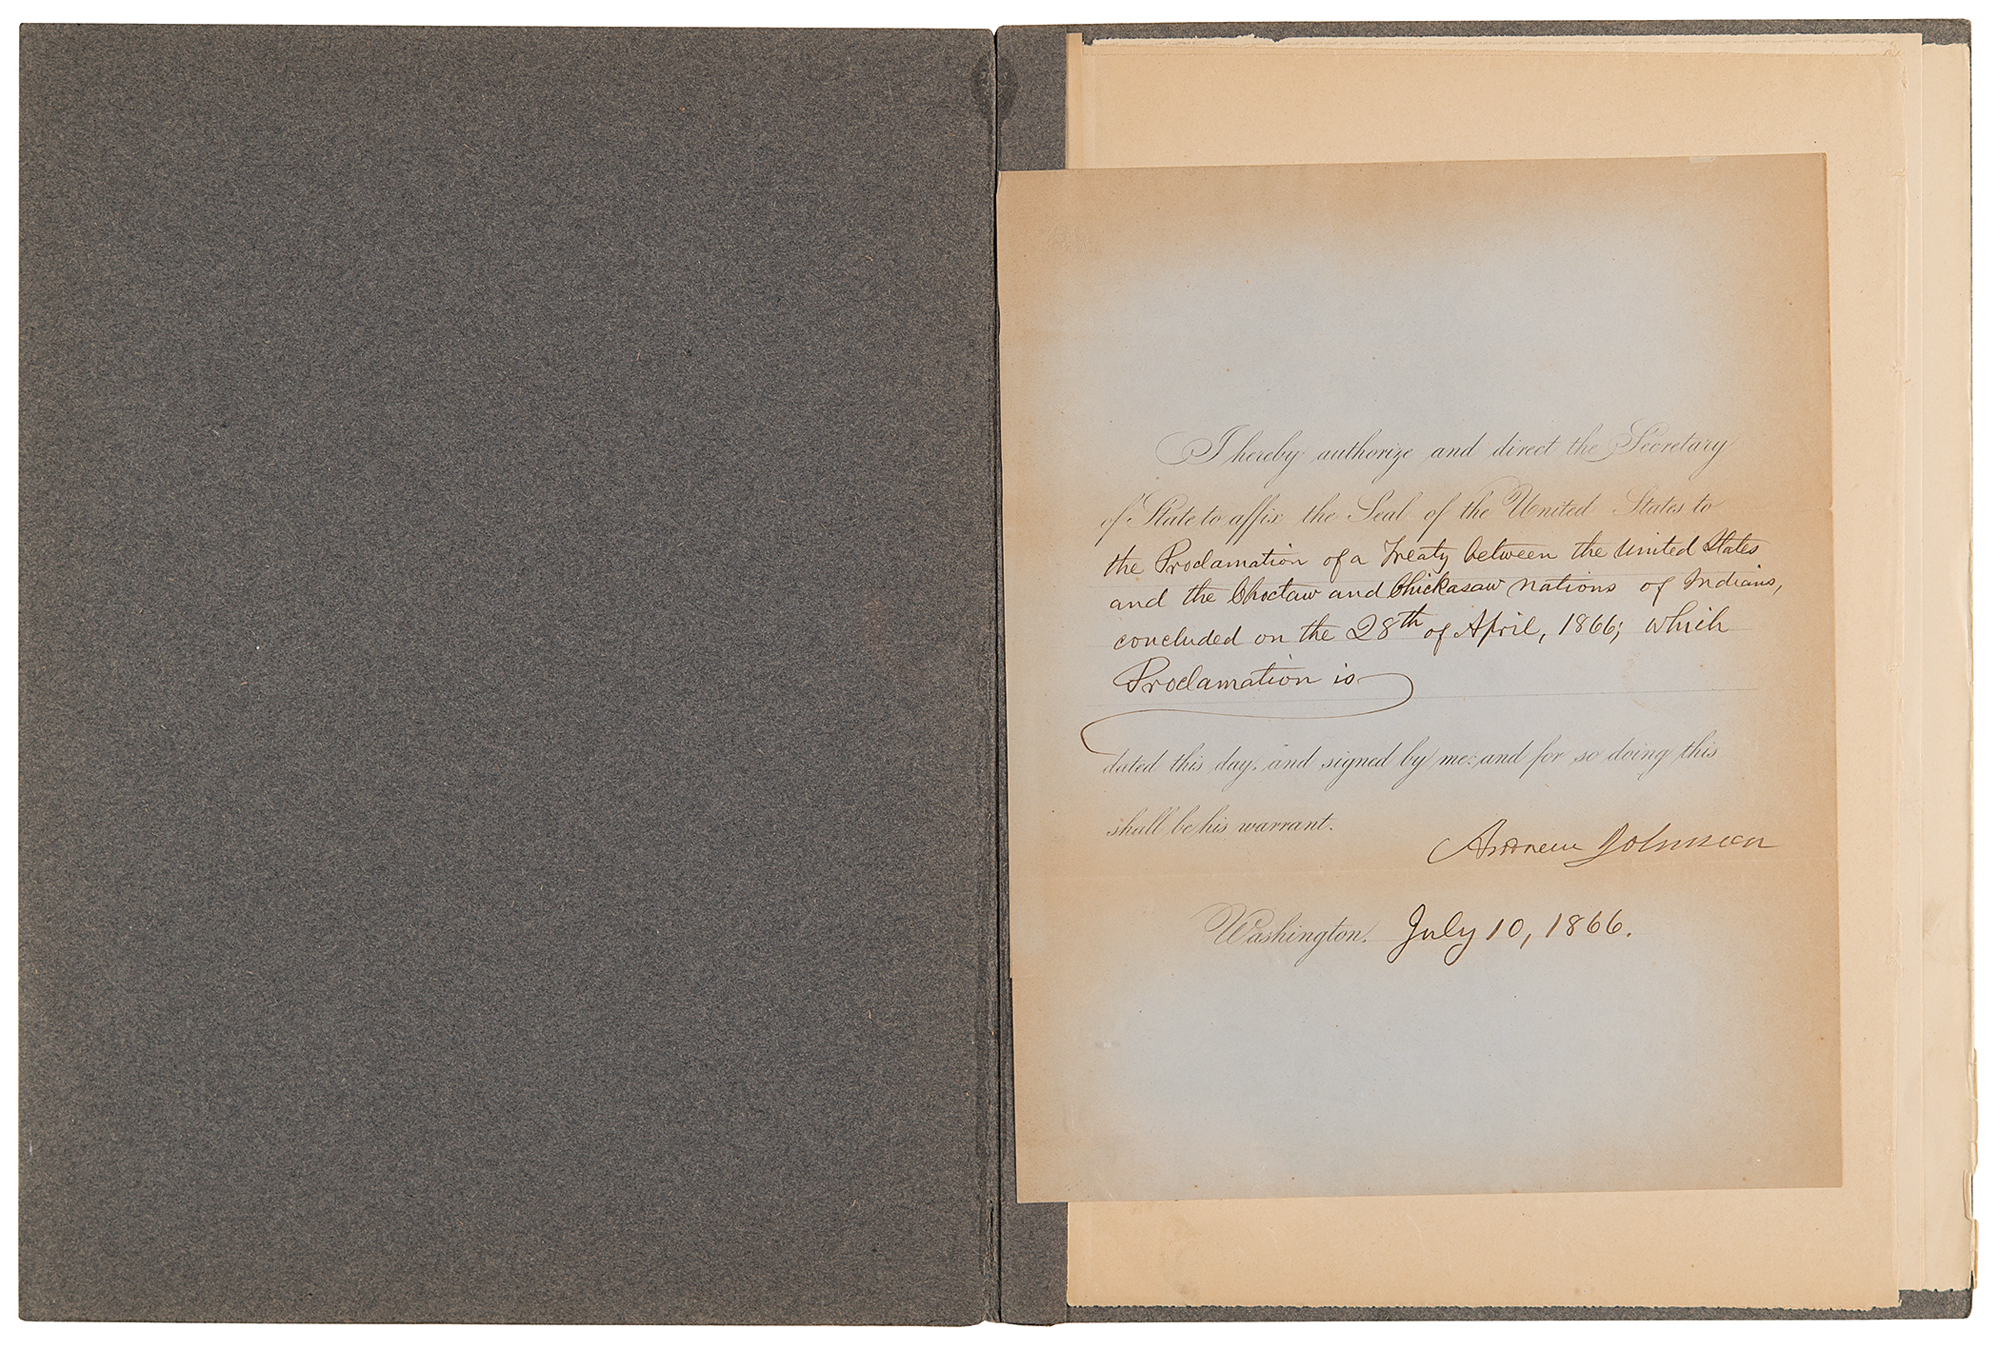 I hereby authorize and direct the Secretary
of State to affix the Seal of the United States to
the Proclamation of a Treaty between the United States
and the Choctaw and Chickasaw Nations of Indians,
concluded on the 28th of April, 1866; which
Proclamation is
dated this day, and signed by me: and for so doing this
shall be his warrant.
Andrew Johnson
Washington, July 10, 1866.